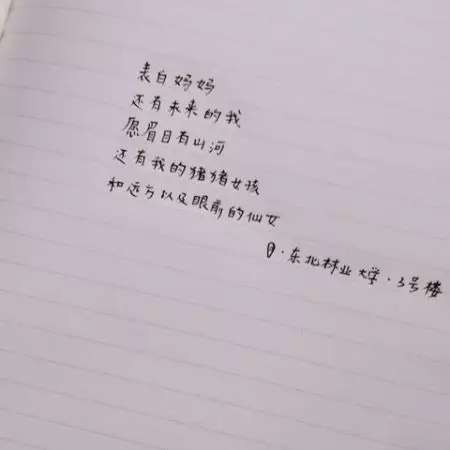 表白妈妈
还有未来的我
愿眉目有山河
还有我的猪猪女孩
和远方以及眼前的仙女
东北林业大学·3号楼